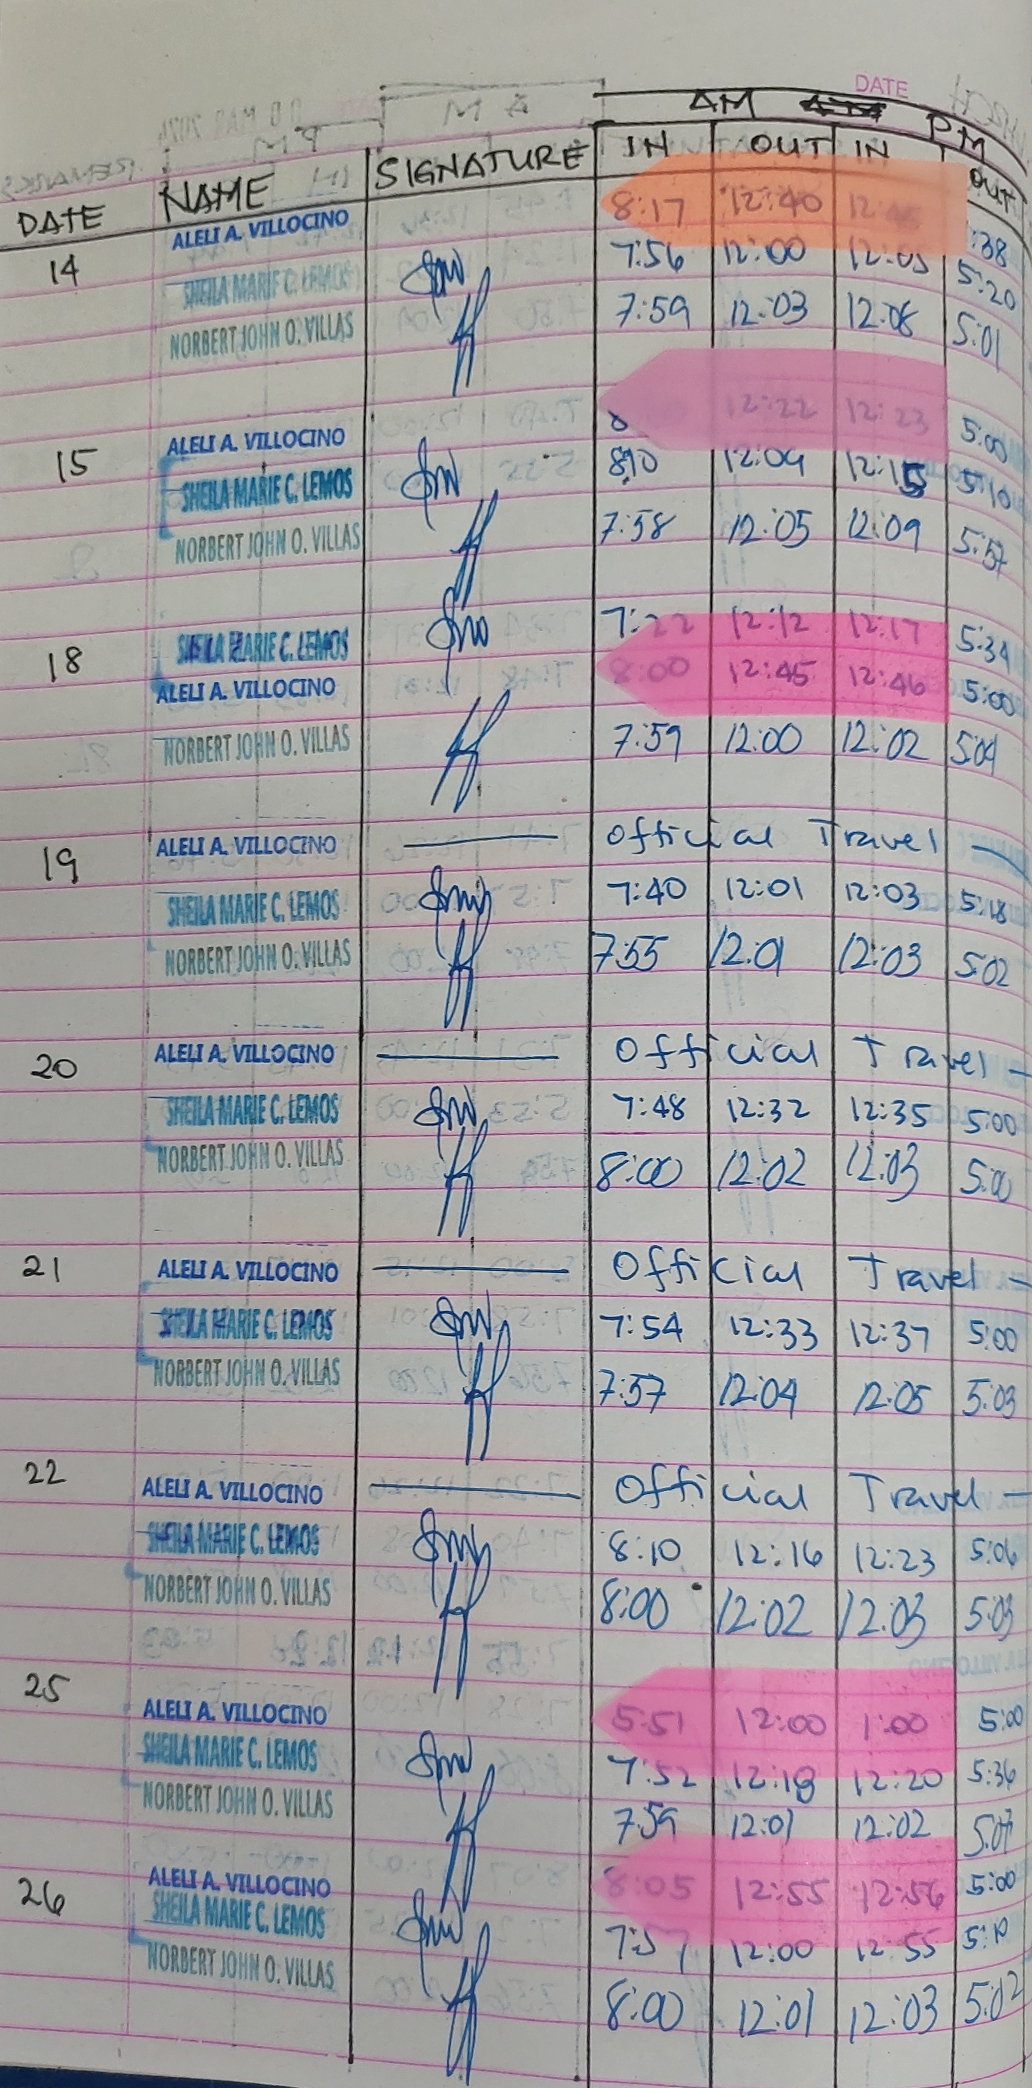 DATE
AM PM
DATE NAME SIGNATURE IN OUT IN OUT
14 ALELI A. VILLOCINO 8:17 12:40 :38
SHEILA MARIE C. LEMOS 7:56 12:00 12:05 5:20
NORBERT JOHN O. VILLAS 7:59 12:03 12:08 5:01
15 ALELI A. VILLOCINO 8 12:22 12:23 5:00
SHEILA MARIE C. LEMOS 8:10 12:09 12:15 5:10
NORBERT JOHN O. VILLAS 7:58 12:05 12:09 5:57
18 SHEILA MARIE C. LEMOS 7:22 12:12 12:17 5:34
ALELI A. VILLOCINO 8:00 12:45 12:46 5:00
NORBERT JOHN O. VILLAS 7:59 12:00 12:02 5:04
19 ALELI A. VILLOCINO Official Travel
SHEILA MARIE C. LEMOS 7:40 12:01 12:03 5:18
NORBERT JOHN O. VILLAS 7:55 12:01 12:03 5:02
20 ALELI A. VILLOCINO Official Travel
SHEILA MARIE C. LEMOS 7:48 12:32 12:35 5:00
NORBERT JOHN O. VILLAS 8:00 12:02 12:03 5:00
21 ALELI A. VILLOCINO Official Travel
SHEILA MARIE C. LEMOS 7:54 12:33 12:37 5:00
NORBERT JOHN O. VILLAS 7:57 12:04 12:05 5:03
22 ALELI A. VILLOCINO Official Travel
SHEILA MARIE C. LEMOS 8:10 12:16 12:23 5:06
NORBERT JOHN O. VILLAS 8:00 12:02 12:03 5:03
25 ALELI A. VILLOCINO 5:51 12:00 1:00 5:00
SHEILA MARIE C. LEMOS 7:52 12:18 12:20 5:36
NORBERT JOHN O. VILLAS 7:59 12:01 12:02 5:07
26 ALELI A. VILLOCINO 8:05 12:55 12:56 5:00
SHEILA MARIE C. LEMOS 7:57 12:00 12:55 5:10
NORBERT JOHN O. VILLAS 8:00 12:01 12:03 5:02